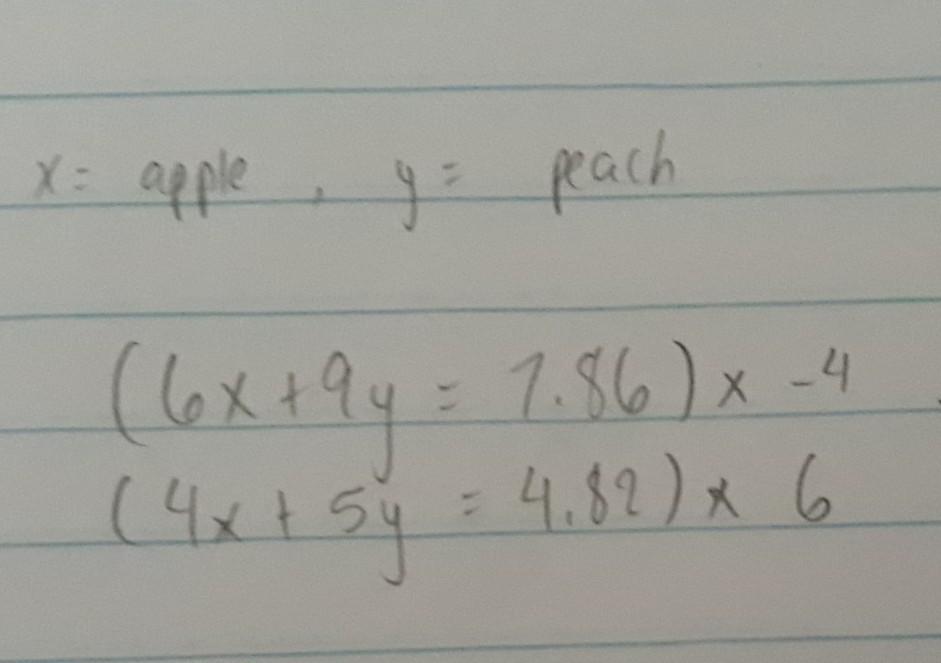 x= apple , y= peach
(6x+9y = 7.86) x -4
(4x+5y = 4.82) x 6